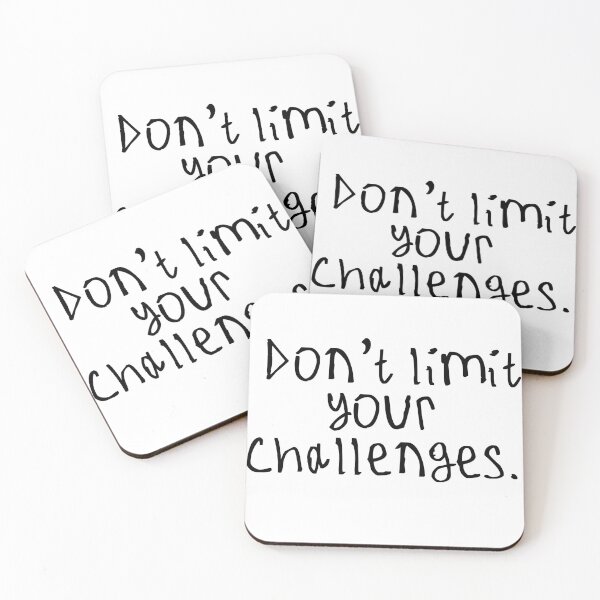 Don't limit
your
Don't limit
your
challenges.
Don't limit
your
Don't limit
your
challenges.